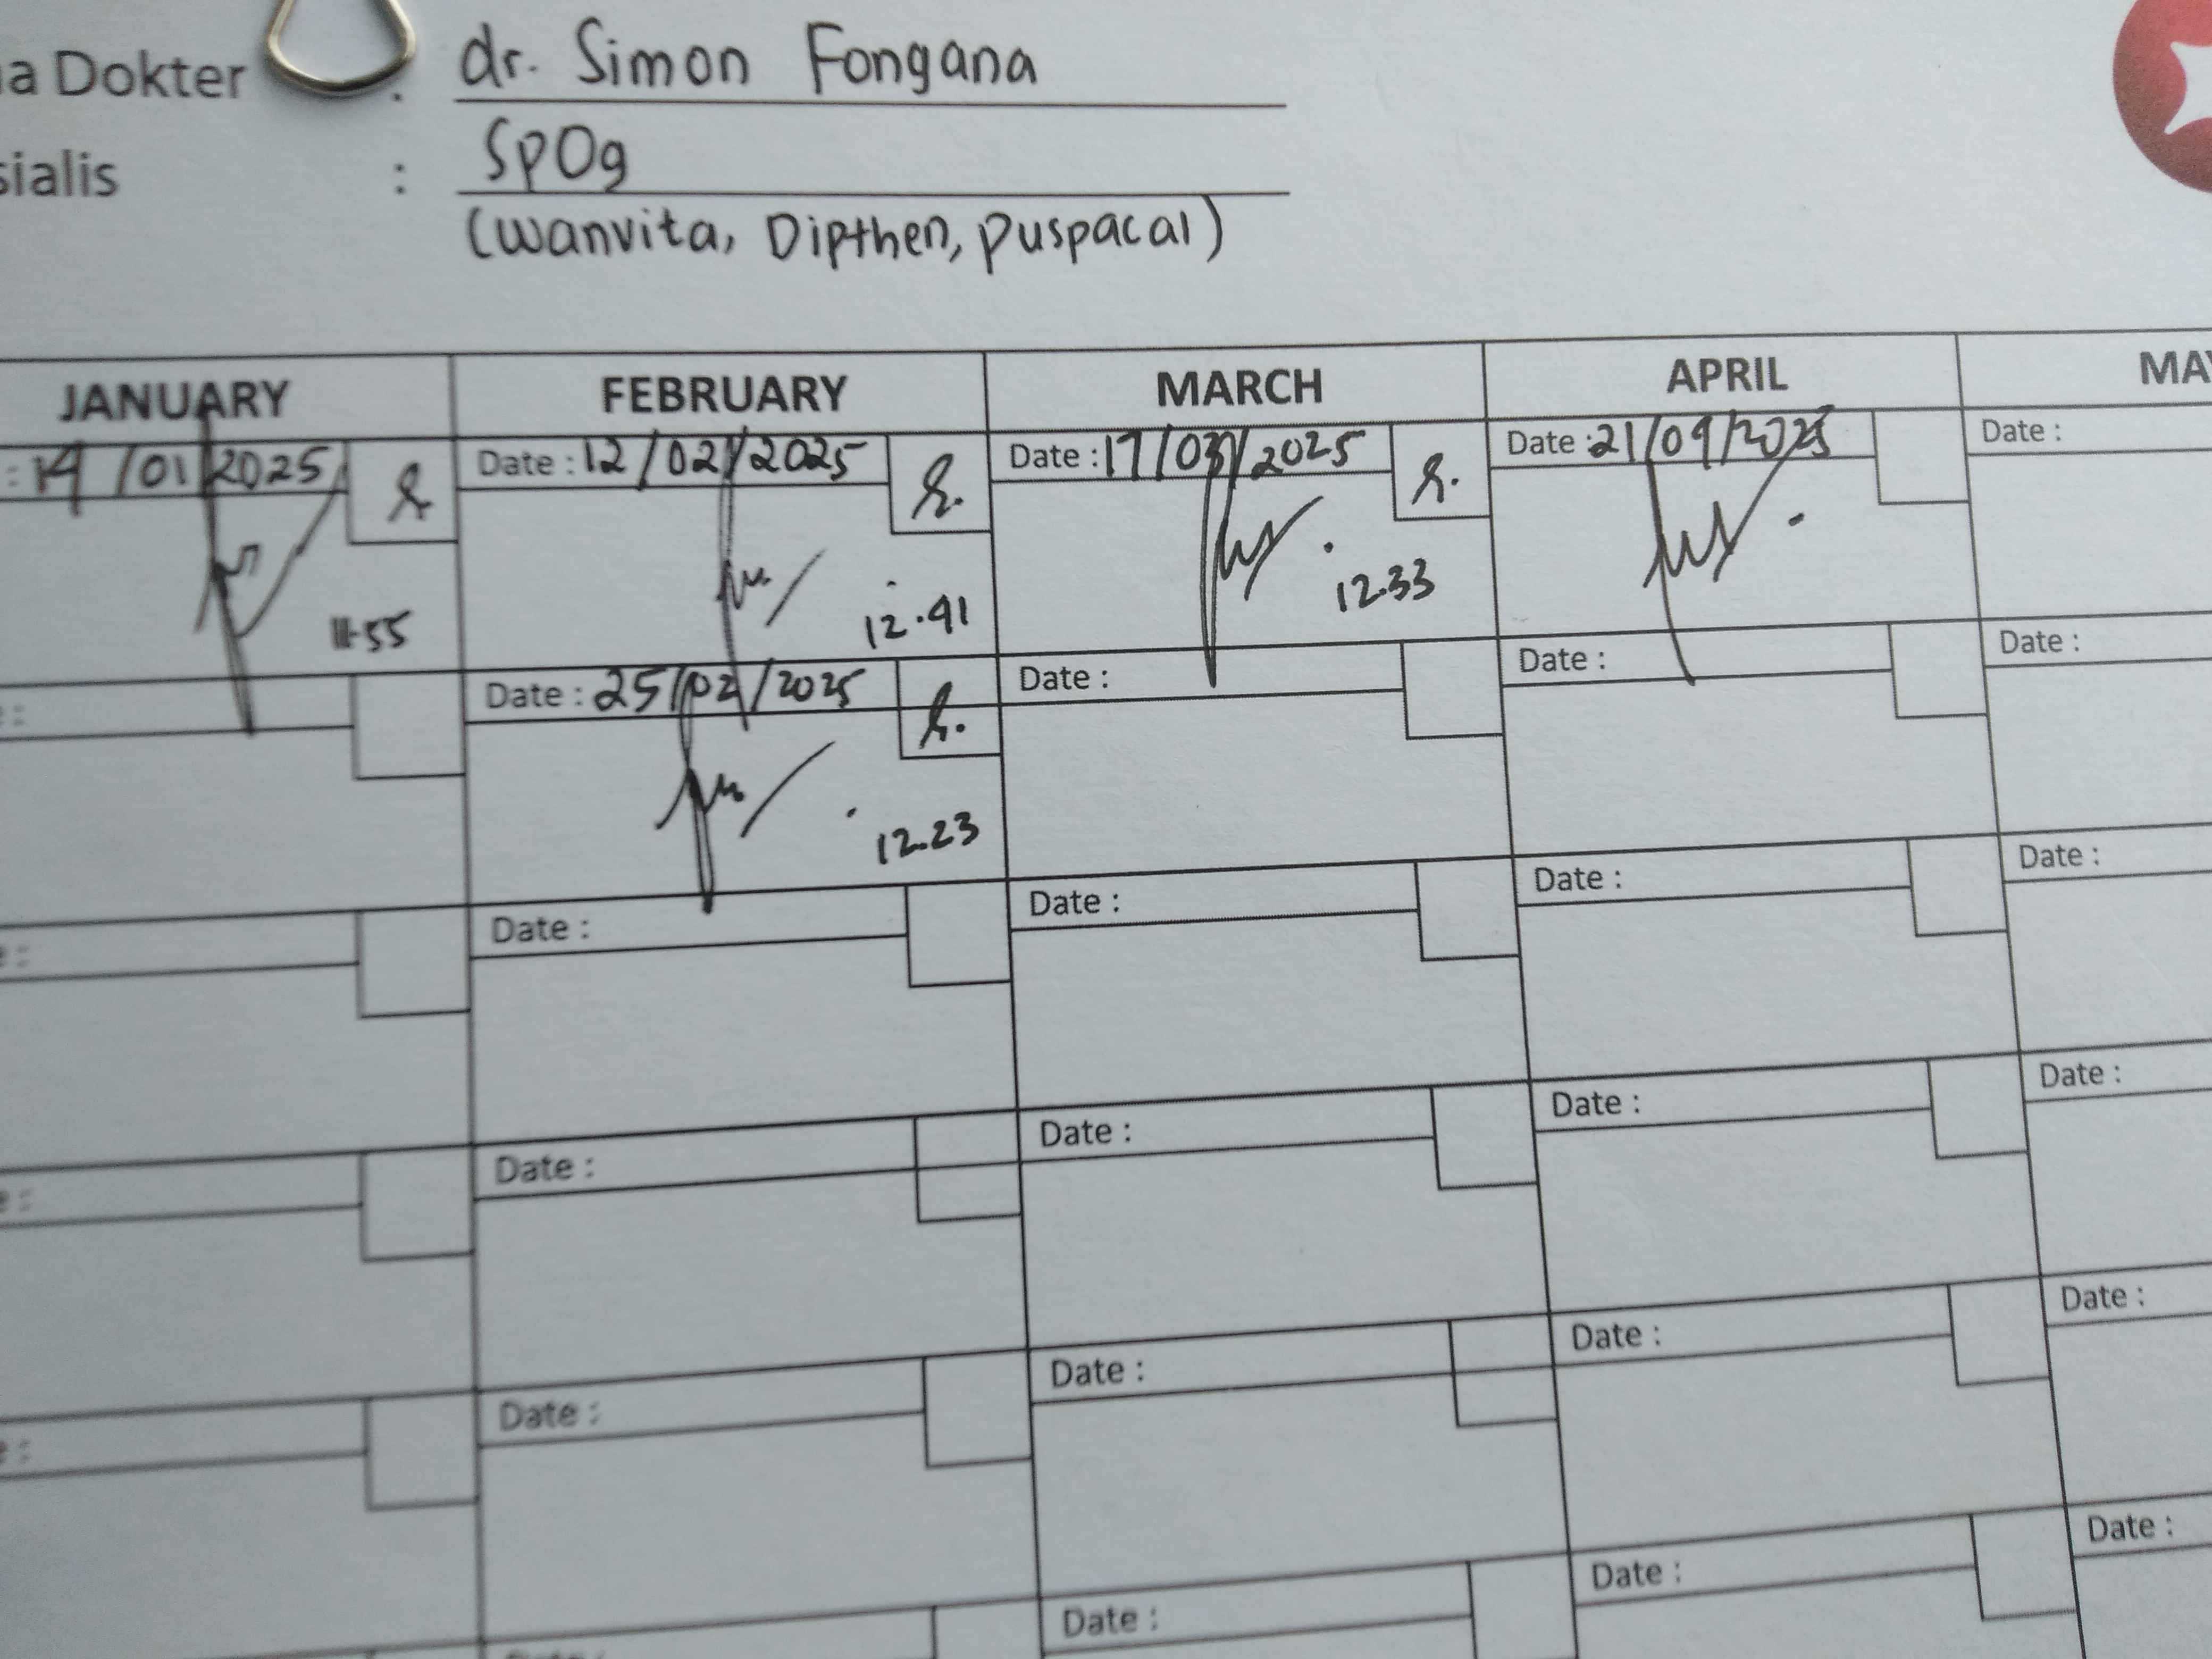 a Dokter : dr. Simon Fongana
sialis : SpOg
(Wanvita, Dipthen, Puspacal)
JANUARY FEBRUARY MARCH APRIL MAY
: 14/01/2025 Date : 12/02/2025 Date : 17/03/2025 Date : 21/04/2025 Date :
11.55 12.41 12.33
: Date : 25/02/2025 Date : Date : Date :
12.23
: Date : Date : Date : Date :
: Date : Date : Date : Date :
: Date : Date : Date : Date :
Date : Date : Date :